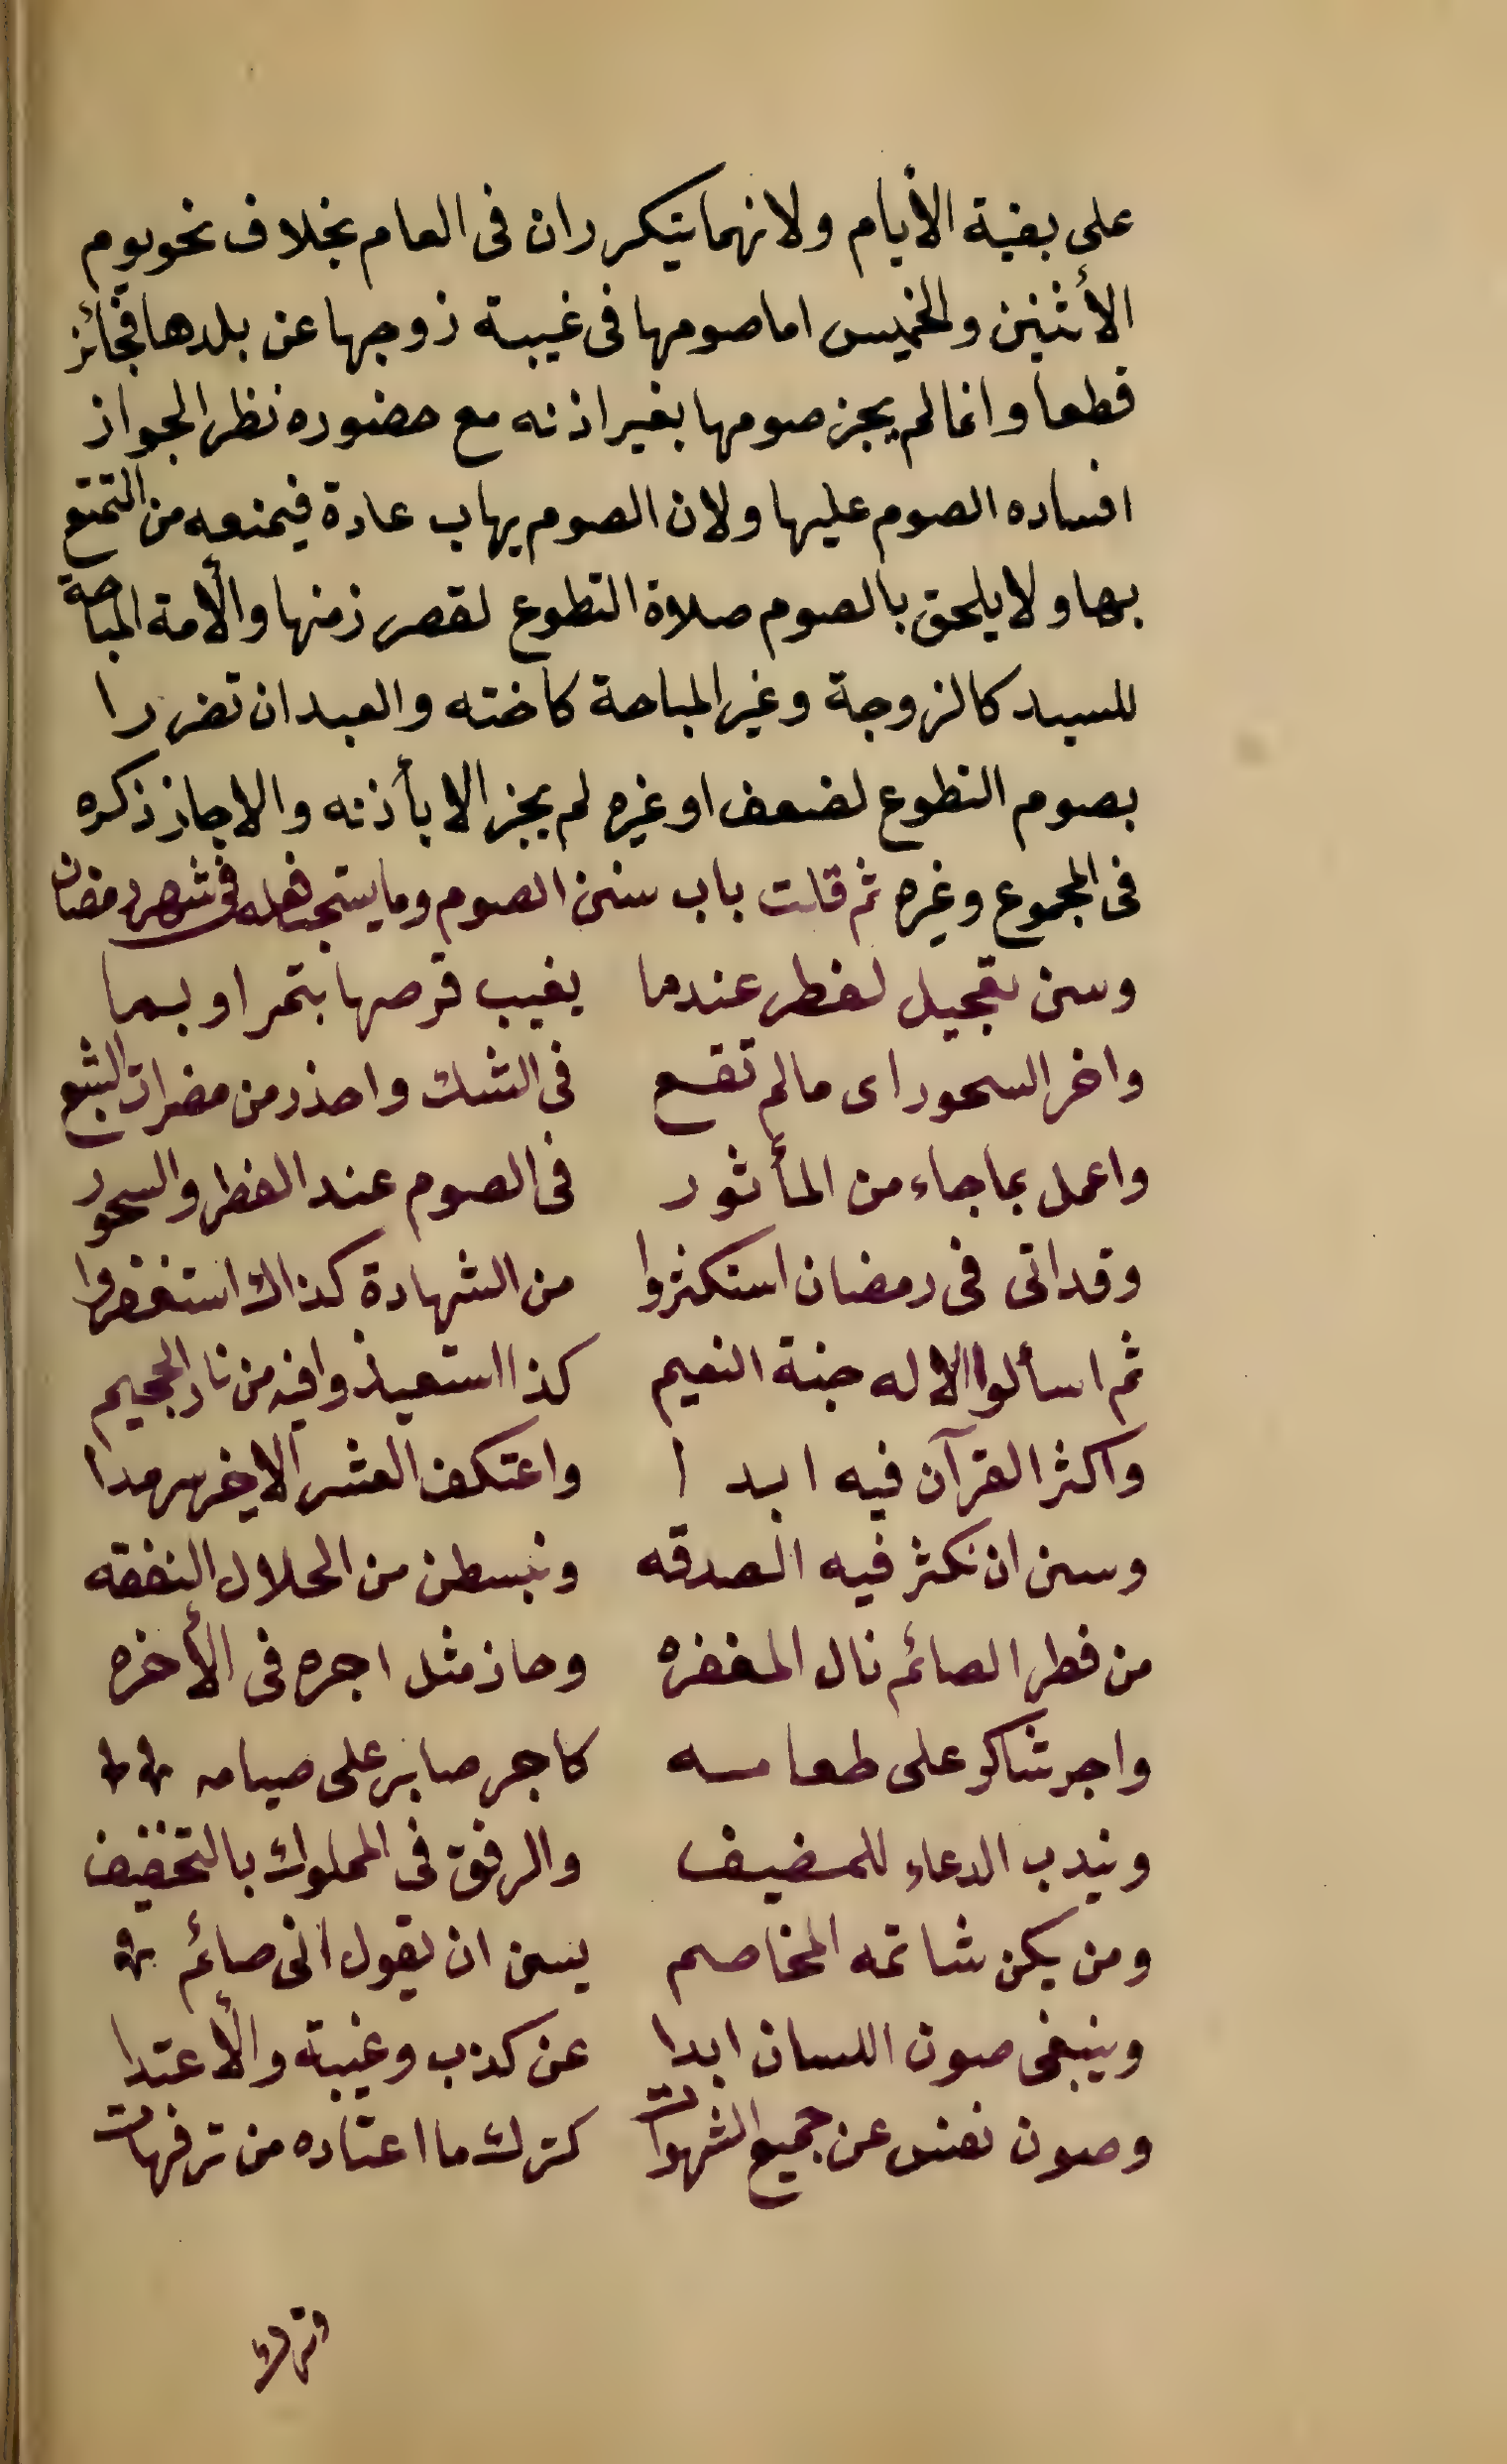 على بقية الأيام ولانهما يتكرران فى العام بخلاف نحو يوم
الأثنين والخميس اما صومها فى غيبة زوجها عن بلدها فجائز
قطعا وانما لم يجز صومها بغير اذنه مع حضوره نظر الجواز
افساده الصوم عليها ولان الصوم يهاب عادة فيمنعه من التمتع
بها ولا يلحق بالصوم صلاة التطوع لقصر زمنها والأمة المباحة
للسيد كالزوجة وغير المباحة كاخته والعبد ان تضررا
بصوم التطوع لضعف او غيره لم يجز الا بأذنه والا جاز ذكره
فى المجموع وغيره ثم قلت باب سنن الصوم وما يستحب فعله فى شهر رمضان
وسن تعجيل لفطر عندما يغيب قرصها بتمر او بما
واخر السحور اى مالم تقع فى الشك واحذر من مضرات الشبع
واعمل بما جاء من المأثور فى الصوم عند الفطر والسحور
وقد اتى فى رمضان استكثروا من الشهادة كذاك استغفروا
ثم اسألوا الاله جنة النعيم كذا استعيذوا فيه من نار الجحيم
واكثر القرآن فيه ابدا واعتكف العشر الاخير سرمدا
وسن ان نكثر فيه الصدقه ونبسطن من الحلال النفقه
من فطر الصائم نال المغفره وحاز مثل اجره فى الأخره
واجر شاكر على طعامه كاجر صابر على صيامه
ويندب الدعاء للمضيف والرفق فى المملوك بالتخفيف
ومن يكن شاتمه المخاصم يسن ان يقول انى صائم
وينبغى صون اللسان ابدا عن كذب وغيبة والأعتدا
وصون نفس عن جميع الشهوات كترك ما اعتاده من ترفهات
وترك